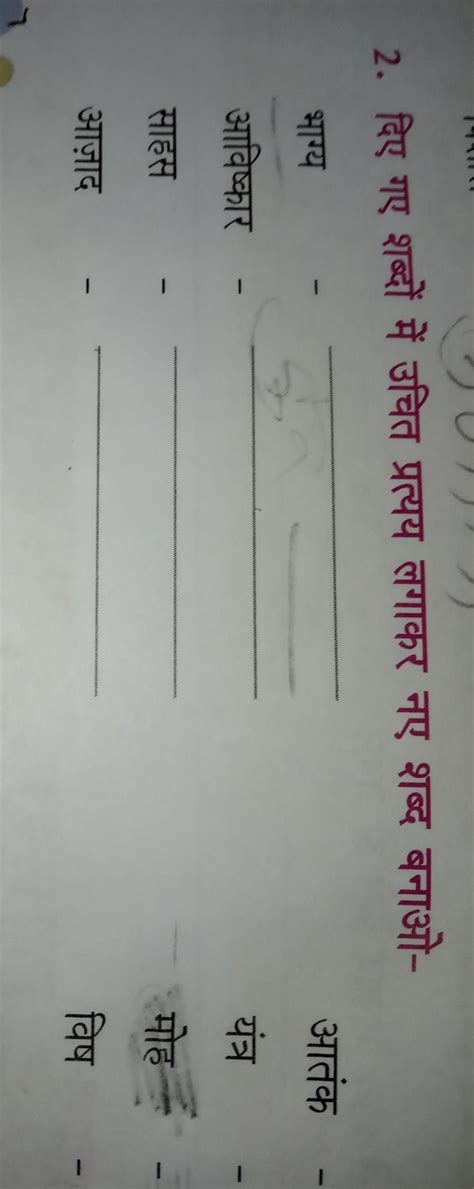 2. दिए गए शब्दों में उचित प्रत्यय लगाकर नए शब्द बनाओ-
भाग्य - आतंक -
आविष्कार - यंत्र -
साहस - मोह -
आज़ाद - विष -